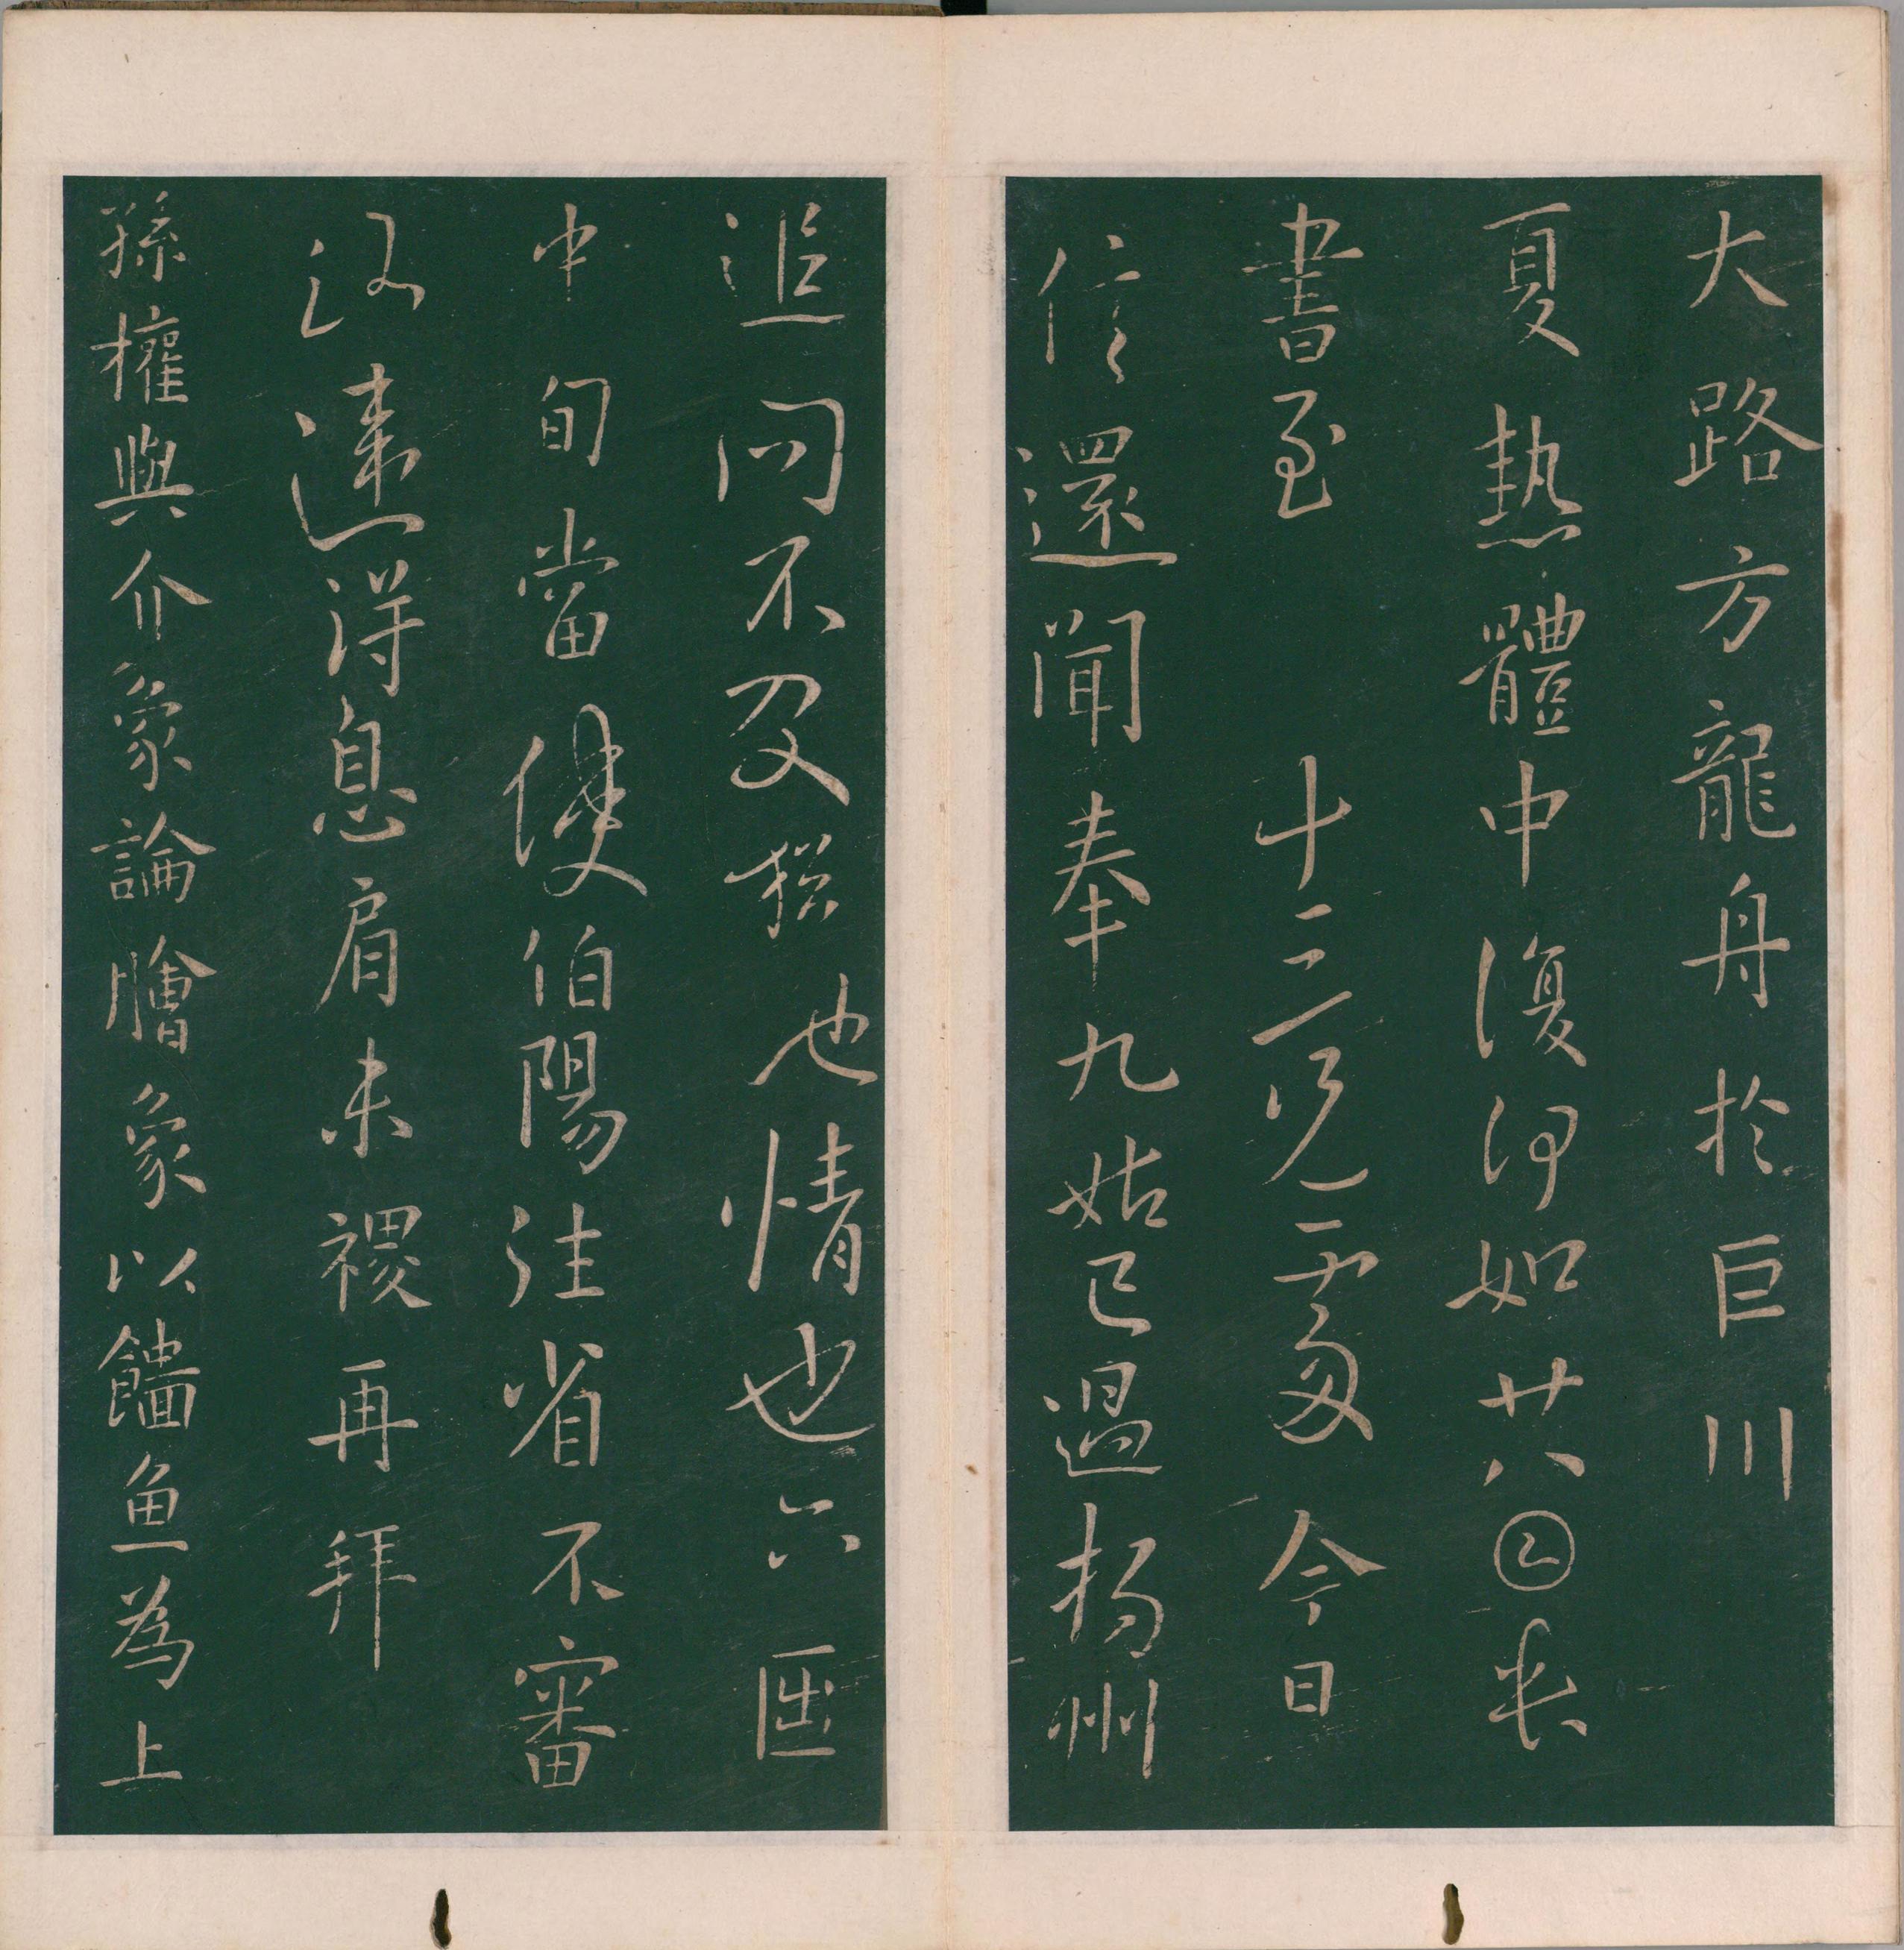 大路方龍舟於巨川
夏熱體中復何如廿八𡆠長
書至 十三兄 處 今日
信還聞奉九姑已過揚州
追問不及 也情也六
中旬當使伯陽往省不審
達得息肩未禝再拜
孫權與介象論膾象以鯔魚為上